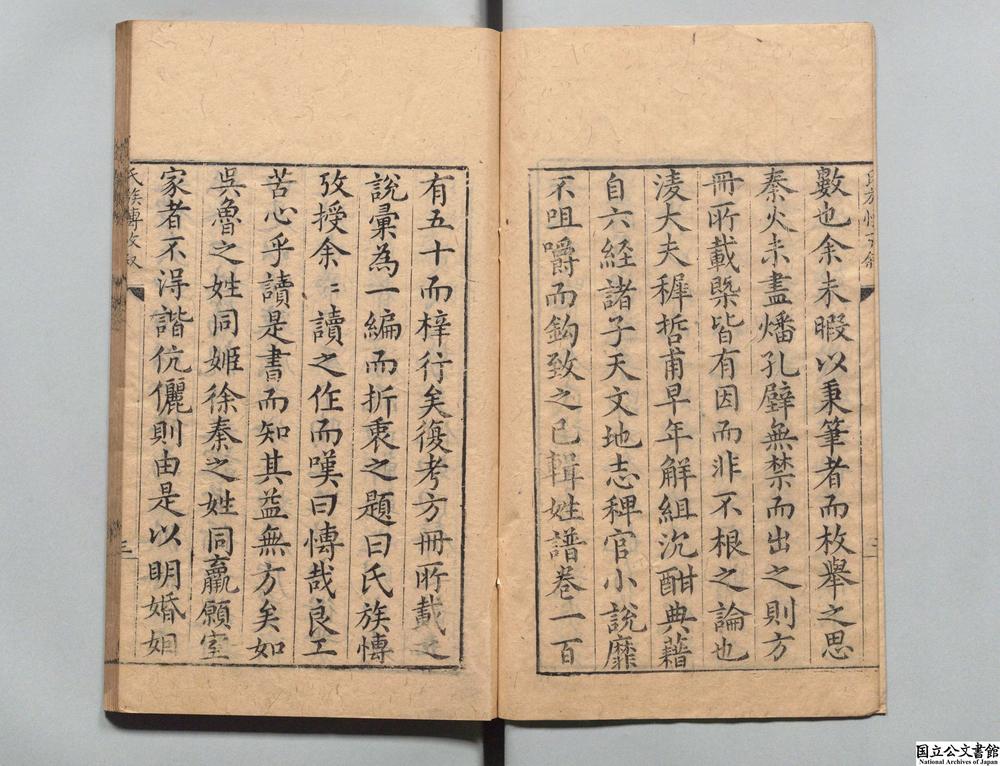 數也余未暇以秉筆者而枚舉之思
秦火未盡燔孔壁無禁而出之則方
冊所載槩皆有因而非不根之論也
淩大夫穉哲甫早年解組沉酣典藉
自六経諸子天文地志稗官小說靡
不咀嚼而鈎致之已輯姓譜卷一百
有五十而梓行矣復考方冊所載之
說彙為一編而折衷之題曰氏族慱
攷授余〻讀之作而嘆曰慱哉良工
苦心乎讀是書而知其益無方矣如
吳魯之姓同姬徐秦之姓同嬴願室
家者不淂諧伉儷則由是以明婚姻
氏族慱攷叙
三
国立公文書館
National Archives of Japan